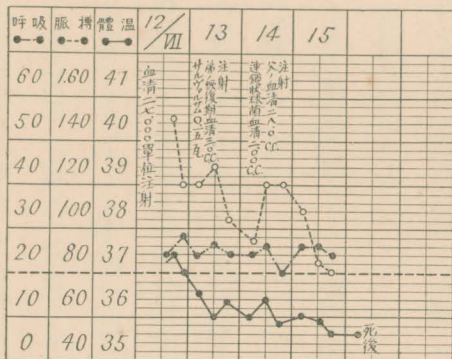 呼吸 脈搏 體温 12/VII 13 14 15
60 160 41
50 140 40
40 120 39
30 100 38
20 80 37
10 60 36
0 40 35
血清二七〇〇〇單位注射
注射
弟ノ恢復期血清三〇C.C.
サルヴァルサン〇.一五瓦
注射
父ノ血清二八.〇C.C.
連鎖狀球菌血清二〇〇C.C.
死後